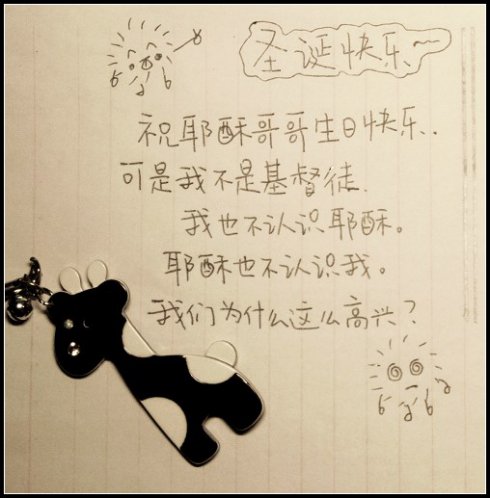 圣诞快乐~
祝耶酥哥哥生日快乐..
可是我不是基督徒.
我也不认识耶酥。
耶酥也不认识我。
我们为什么这么高兴?